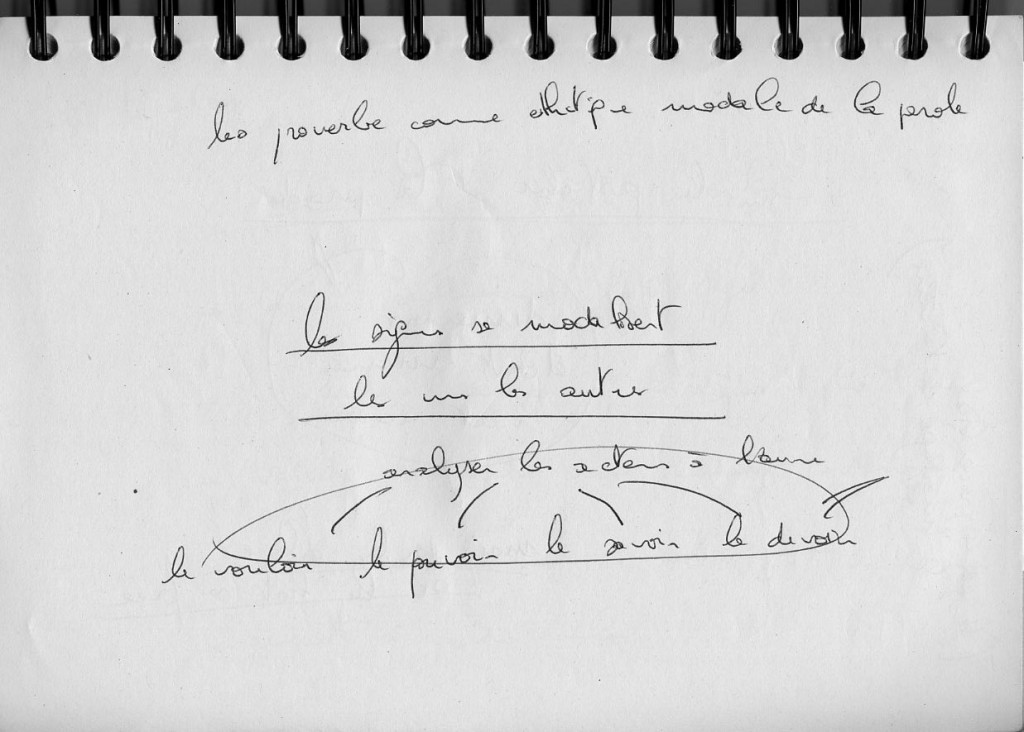 les proverbe comme esthétique modale de la parole
les signes se modalisent
les uns les autres
analyser les acteurs à l'œuvre
le vouloir le pouvoir le savoir le devoir